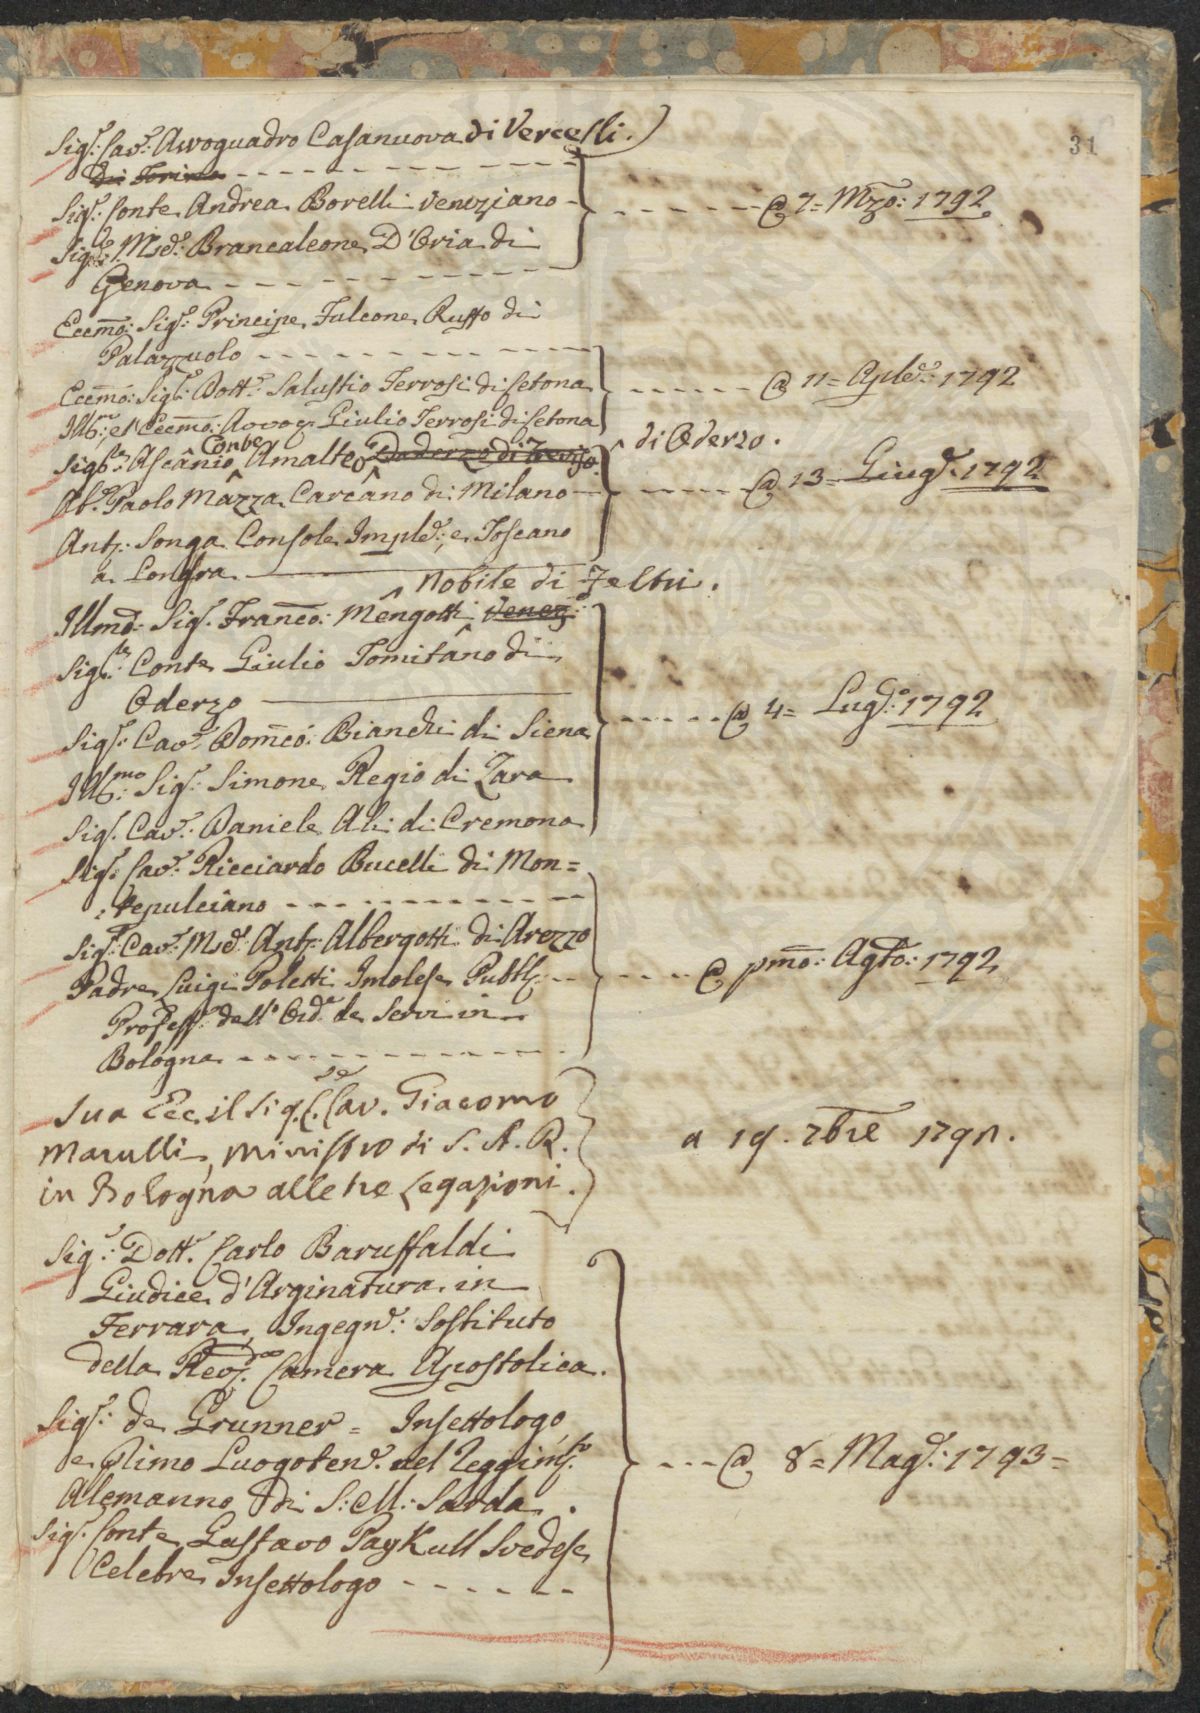 31
Sig.r Cav.r Avvoguadro Casanuova di Vercelli.
di Torino
Sig.r Conte Andrea Borelli Veneziano
@ 7= Mzo: 1792
Sig.r M.se Brancaleone D'Oria di
Genova
Eccmo: Sig.r Principe Fulcone Ruffo di
Palazzuolo
Eccmo: Sig.r Dott.r Salustio Terrosi di Cetona
@ 11= Aple: 1792
Illmo: et Eccmo: Avvog. Giulio Terrosi di Cetona
Sig.r Ascânio Conte Amalteo Daderzo di Treviso
di Oderzo.
Ab.e Paolo Mâzza Carcâno di Milano
@ 13= Giug.o 1792
Ant.o Songa Console Imple: e Toscano
a Londra
Nobile di Feltri.
Illmo: Sig.r Franco: Mêngotti Venez:
Sig.r Conte Giulio Tomitâno di
Oderzo
@ 4= Lug.o 1792
Sig.r Cav.r Domco: Bianchi di Siena
Ill.mo Sig.r Simone Regio di Zara
Sig.r Cav.r Daniele Ali di Cremona
Sig.r Cav.r Ricciardo Bucelli di Mon=
tepulciano
Sig.r Cav.r M.se Ant.o Albergotti di Arezzo
Padre Luigi Poletti Imolese Pubb.
@ pmo: Agto: 1792
Profess.r dell' Ord.e de Servi in
Bologna
Sua Ecc. il Sig.r Cav. Giacomo
Marulli, Ministro di S. A. R.
a 19. 7bre 1792.
in Bologna alle tre Legazioni.
Sig.r Dott.r Carlo Baruffaldi
Giudice d'Arginatura in
Ferrara, Ingegn.e Sostituto
della Rev.da Camera Apostolica.
Sig.r de Grunner = Insettologo,
e Primo Luogoten.e nel Reggim.to
@ 8= Mag.o 1793=
Alemanno di S: M: Sarda.
Sig.r Conte Gustavo Paykull Svedese
Celebre Insettologo